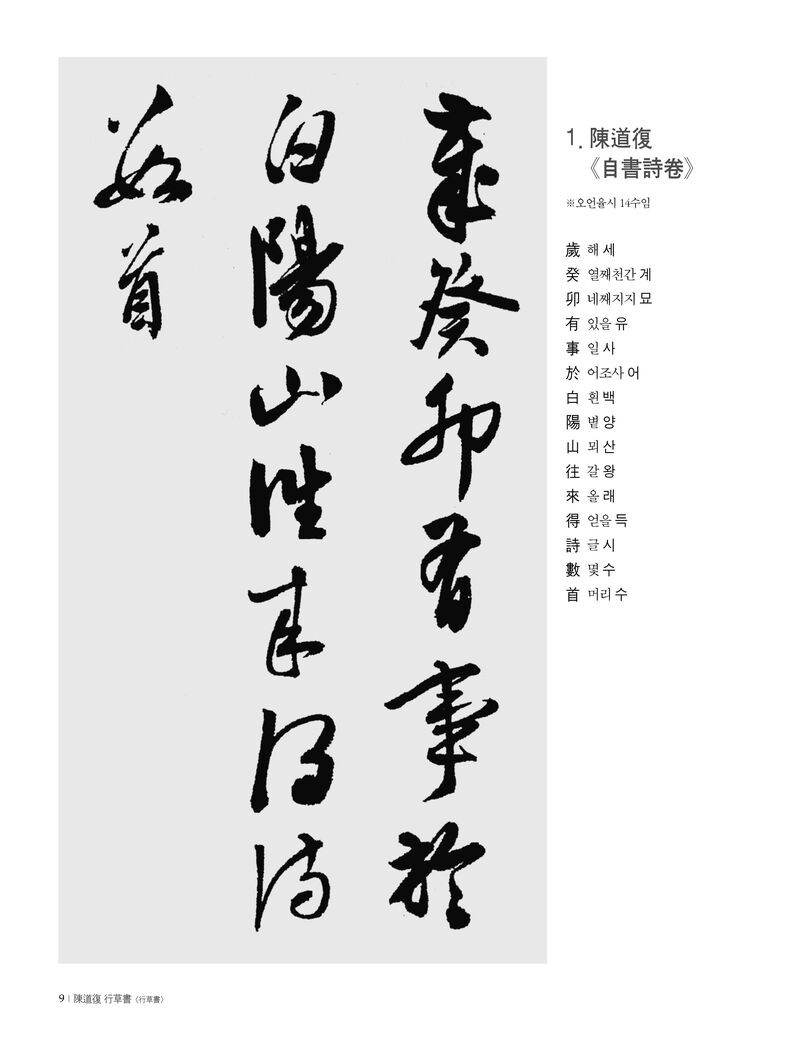 歲癸卯有事於
白陽山往來得詩
數首
1. 陳道復
《自書詩卷》
※오언율시 14수임
歲 해 세
癸 열째천간 계
卯 네째지지 묘
有 있을 유
事 일 사
於 어조사 어
白 흰 백
陽 볕 양
山 뫼 산
往 갈 왕
來 올 래
得 얻을 득
詩 글 시
數 몇 수
首 머리 수
9 | 陳道復 行草書 〈行草書〉